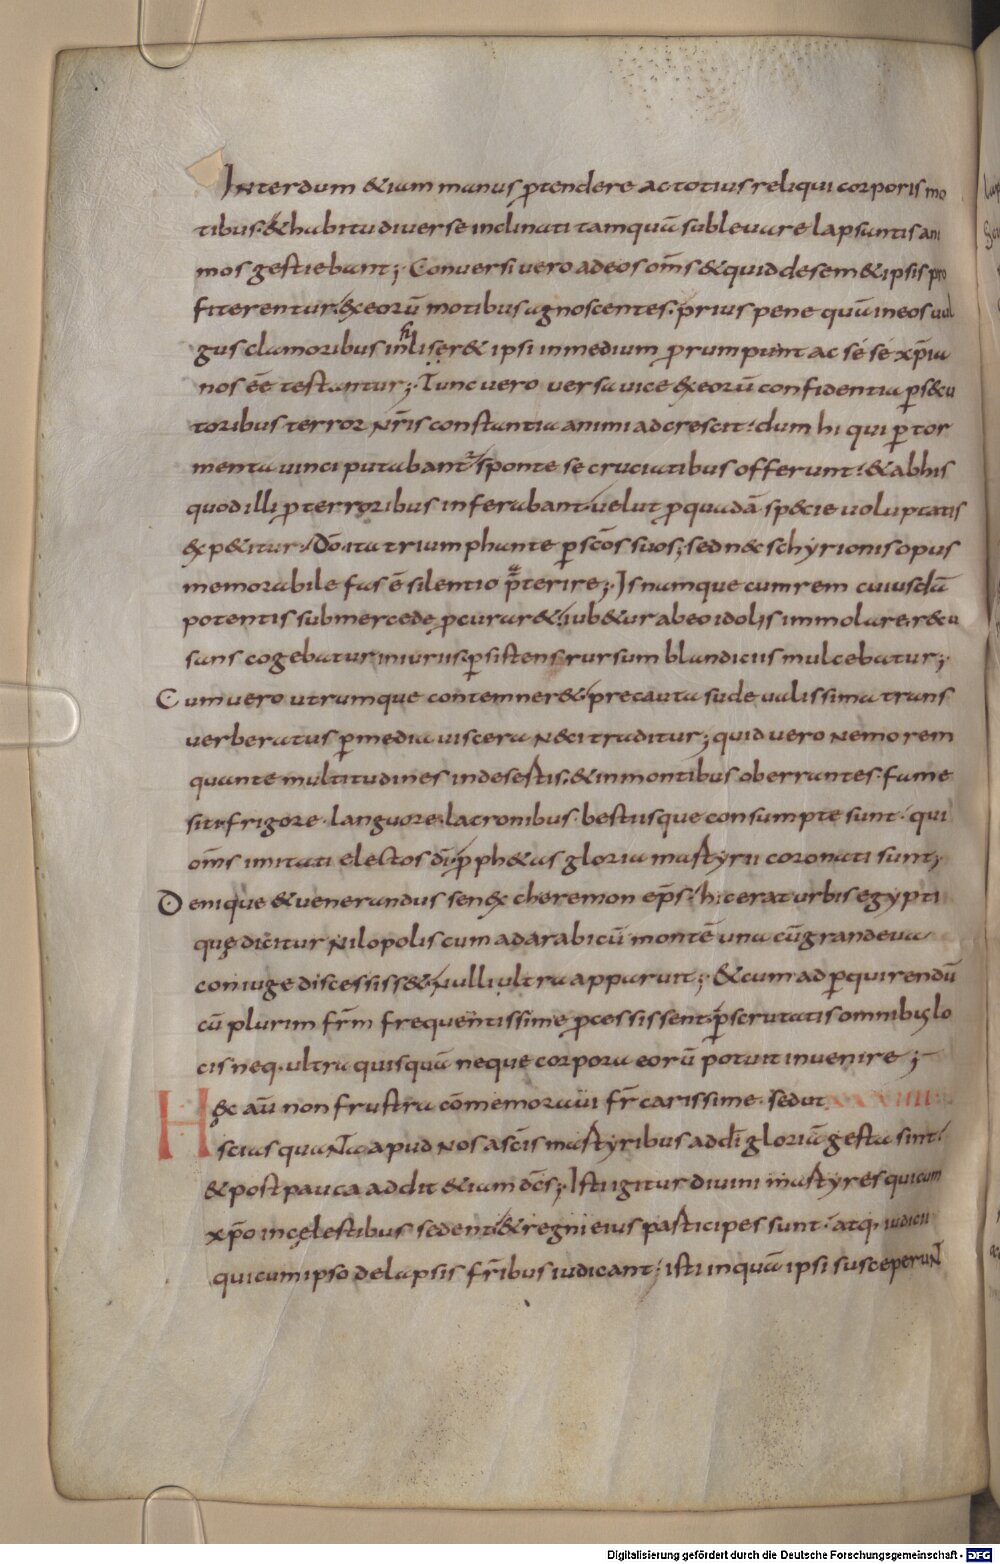 Interdum &iam manus ꝓtendere ac totius reliqui corporis mo
tibus & habitu diverse inclinati tamquā sublevare lapsantis ani
mos gestiebant; Conversi vero ad eos om̄s & quid desem & ipsis pro
fiterentur & ex eorū motibus agnoscentes. prius pene quā in eos uul
gus clamoribus inliser& ipsi in medium ꝓrumpunt ac se se xp̄ia
nos eē testantur; Tunc vero versa vice & ex eorū confidentia ꝑsecu
toribus terror nr̄is constantia animi adcrescit. dum hi qui ꝑ tor
menta uinci putabant. sponte se cruciatibus offerunt. & ab his
quod illi ꝓ terroribus inferabant. velut ꝓ quadā specie voluptatis
exp&itur. Dō ita triumphante ꝑ sc̄os suos; sed nec schyrionis opus
memorabile fas ē silentio p̄terire; Is namque cum rem cuiusdā
potentis sub mercede ꝓcurar&. iub&ur ab eo idolis immolare. recu
sans cogebatur iniuriis. ꝑsistens rursum blandiciis mulcebatur;
Cum vero utrumque contemner& precauta sude ualissima trans
verberatus ꝑ media uiscera neci traditur; quid vero nemorem
quante multitudines in desertis. & in montibus oberrantes. fame
siti. frigore. languore. latronibus. bestiisque consumpte sunt. qui
om̄s imitati electos dī ꝓph&as gloria martyrii coronati sunt;
Denique & venerandus senex cheremon ep̄s. hic erat urbis egypti
quę dicitur nilopolis cum ad arabicū montē una cū grandeva
coniuge discessiss& nulli ultra apparuit; & cum ad ꝑquirendū
cū plurim fr̄m frequentissime ꝓcessissent. ꝑscrutatis omnibus lo
cis neq. ultra quisquā neque corpora eorū potuit invenire;
Hęc aū non frustra cōmemoravi fr̄ carissime. sed ut
scias quanta apud nos a sc̄is martyribus ad dī gloriā gesta sint.
& post pauca addit &iam dc̄s; Isti igitur divini martyres qui cum
xp̄o in cęlestibus sedent. & regni eius participes sunt. atq. iudicii
qui cum ipso de lapsis fr̄ibus iudicant. isti inquā ipsi susceperunt
Digitalisierung gefördert durch die Deutsche Forschungsgemeinschaft - DFG